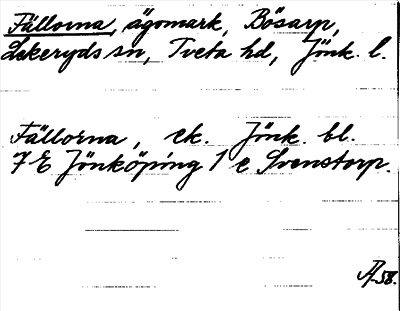 Fällorna, ägomark, Bösarp,
Lekeryds sn, Tveta hd, Jönk. l.
Fällorna, ek. Jönk. bl.
7 E Jönköping 1 e Svenstorp.
58.